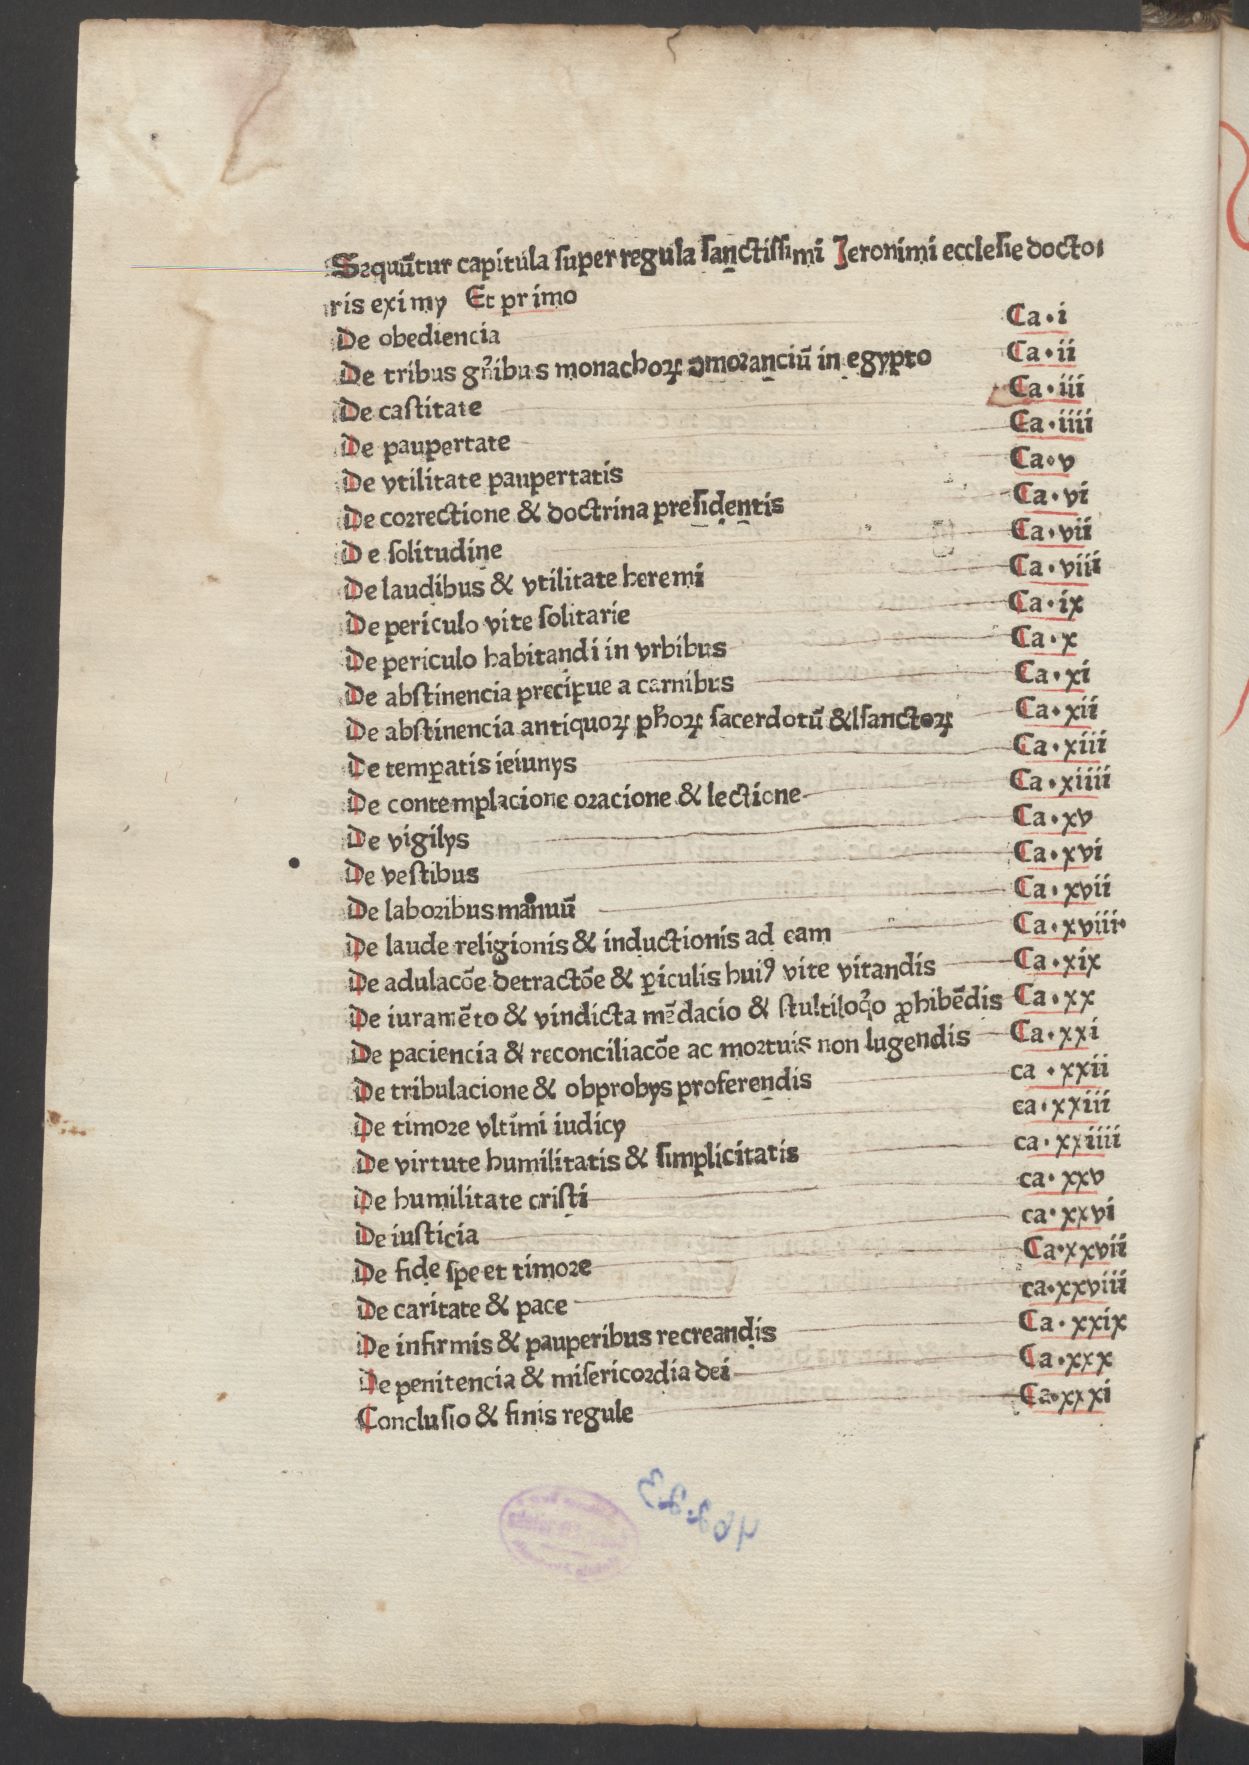 Sequūtur capitula super regula sanctissimi Jeronimi ecclesie docto-
ris eximy Et primo
De obediencia Ca·i
De tribus gn̄ibus monachoꝝ ꝯmoranciū in egypto Ca·ii
De castitate Ca·iii
De paupertate Ca·iiii
De vtilitate paupertatis Ca·v
De correctione & doctrina presidentis Ca·vi
De solitudine Ca·vii
De laudibus & vtilitate heremi Ca·viii
De periculo vite solitarie Ca·ix
De periculo habitandi in vrbibus Ca·x
De abstinencia precipue a carnibus Ca·xi
De abstinencia antiquoꝝ ph̄oꝝ sacerdotū & sanctoꝝ Ca·xii
De temꝑatis ieiunys Ca·xiii
De contemplacione oracione & lectione Ca·xiiii
De vigilys Ca·xv
De vestibus Ca·xvi
De laboribus manuū Ca·xvii
De laude religionis & inductionis ad eam Ca·xviii·
De adulacōe detractōe & ꝑiculis huiꝰ vite vitandis Ca·xix
De iuramēto & vindicta mēdacio & stultiloq̄o ꝓhibēdis Ca·xx
De paciencia & reconciliacōe ac mortuis non lugendis Ca·xxi
De tribulacione & obprobys proferendis ca·xxii
De timore vltimi iudicy ca·xxiii
De virtute humilitatis & simplicitatis ca·xxiiii
De humilitate cristi ca·xxv
De iusticia ca·xxvi
De fide spe et timore Ca·xxvii
De caritate & pace ca·xxviii
De infirmis & pauperibus recreandis Ca·xxix
De penitencia & misericordia dei Ca·xxx
Conclusio & finis regule Ca·xxxi